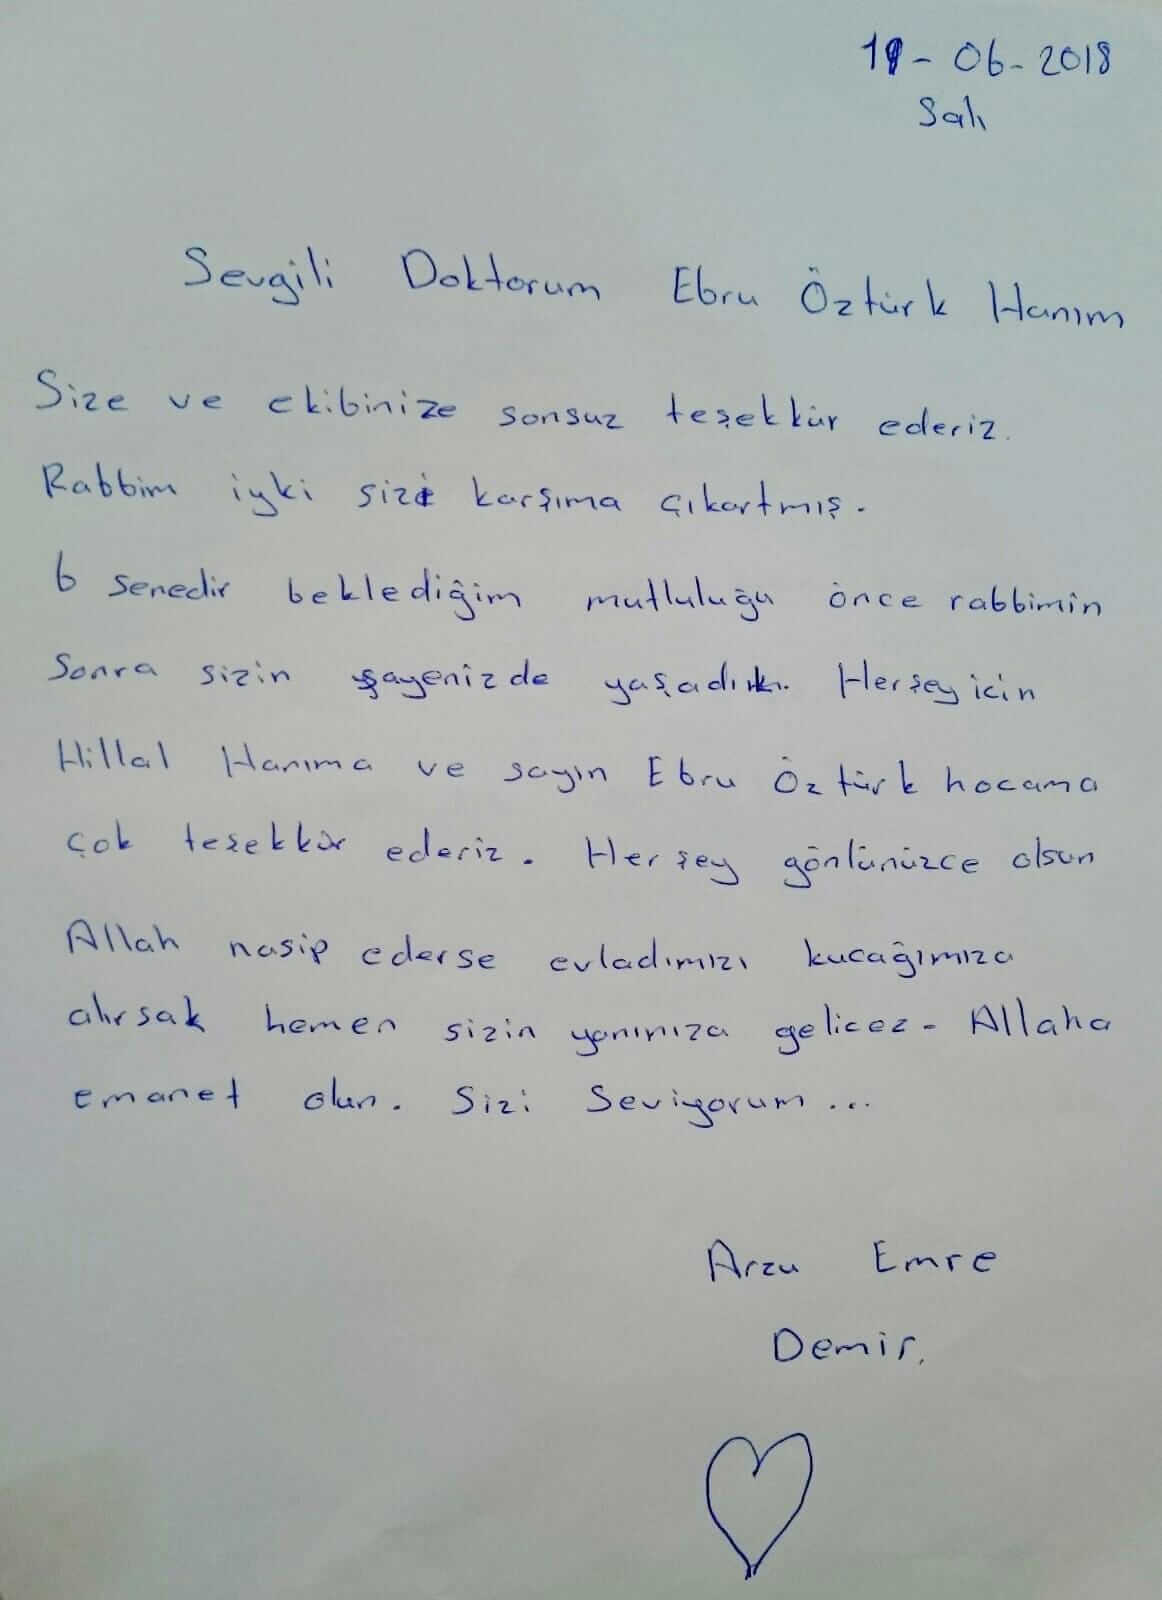 19-06-2018
Salı
Sevgili Doktorum Ebru Öztürk Hanım
Size ve ekibinize sonsuz teşekkür ederiz.
Rabbim iyki sizi karşıma çıkartmış.
6 senedir beklediğim mutluluğu önce rabbimin
Sonra sizin şayenizde yaşadık. Herşey icin
Hillal Hanıma ve sayın Ebru Öztürk hocama
çok teşekkür ederiz. Herşey gönlünüzce olsun
Allah nasip ederse evladımızı kucağımıza
alırsak hemen sizin yanınıza gelicez- Allaha
emanet olun. Sizi Seviyorum...
Arzu Emre
Demir.